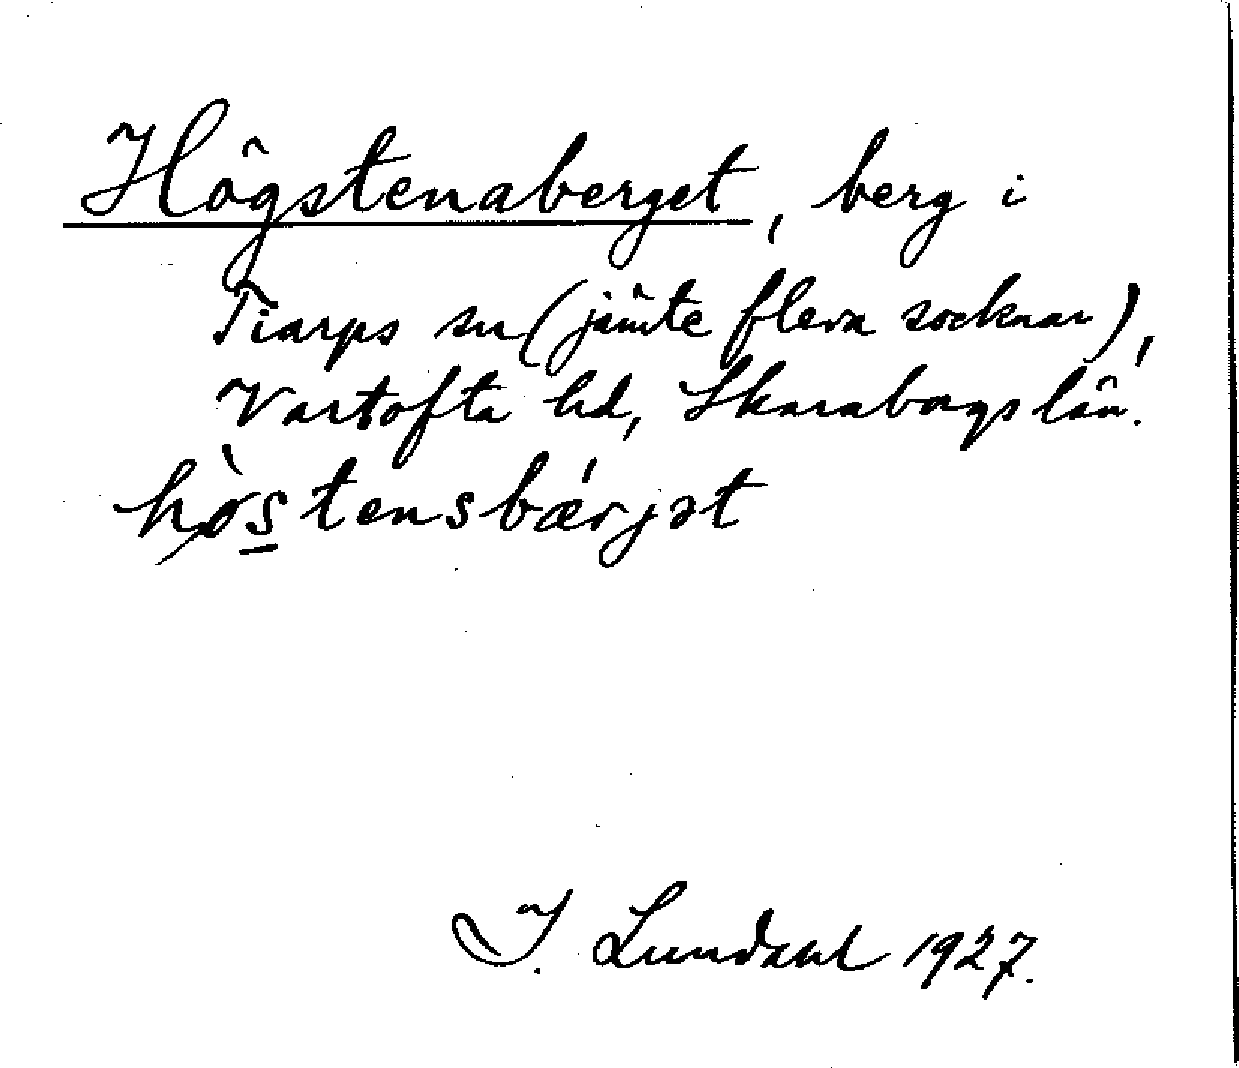 Högstenaberget, berg i
Tiarps sn (jämte flera socknar),
Vartofta hd, Skaraborgs län.
hø̀stensbǽrjət
I. Lundahl 1927.